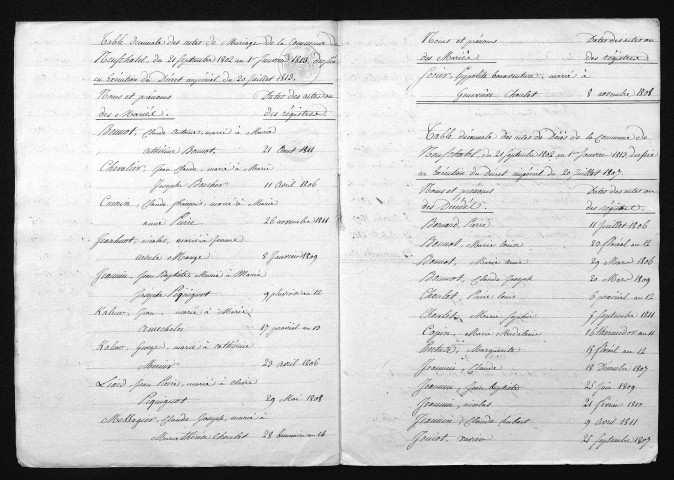 Table décennale des actes de Mariage de la Commune de
Neufchatel, du 21 Septembre 1802 au 1er Janvier 1813, dressée
en Exécution du Décret impérial du 20 Juillet 1813.
Noms et prénoms Dates des actes ou
des Mariés. des régistres
Bonnot, Claude Antoine, marié à Marie
Cathérine Bonnot, 21 Aout 1811
Chevalier, Jean Claude, marié à Marie
Josephe 11 Avril 1806
Cunin, Claude François, marié à Marie
anne Pierre 26 novembre 1811
nicolas, marié à Jeanne
ursule 8 Janvier 1809
Jeannin, Jean Baptiste, Marié à Marie
Josephe Péquignot 9 pluviose an 12
Jean, marié à Marie
17 prairial an 13
George, marié à cathérine
Mercier 23 avril 1806
Liard, Jean Pierre, marié à claire
Péquignot 29 Mai 1808
Mettagier, Claude Joseph, marié à
Marie thérèse Choulet 28 brumaire an 14
Noms et prénoms Dates des actes ou
des Mariés des régistres
hypolite bonaventure, marié à
Geneviève Choulet 8 novembre 1808
Table décennale des actes de Décès de la Commune de
Neufchatel, du 21 Septembre 1802 au 1er Janvier 1813, dressée
en Exécution du Décret impérial du 20 Juillet 1807.
Noms et prénoms Dates des actes ou
des Décédés des régistres.
Bonnard, Pierre 11 Juillet 1806
Bonnot, Marie louise 20 floréal an 12
Bonnot, Marie anne 29 Mars 1806
Bonnot, Claude Joseph 20 Mars 1809
Choulet, Pierre louis 6 prairial an 12
Choulet, Marie Sophie 5 Septembre 1811
Marie Madeleine 16 thermidor an 11
Marguerite 15 floréal an 12
Jeannin, Claude 18 Decembre 1807
Jeannin, Jean Baptiste 25 Juin 1809
Jeannin, nicolas 21 février 1810
Jeannin, Claude hubert 9 avril 1811
Jouiot, xavier 25 Septembre 1807